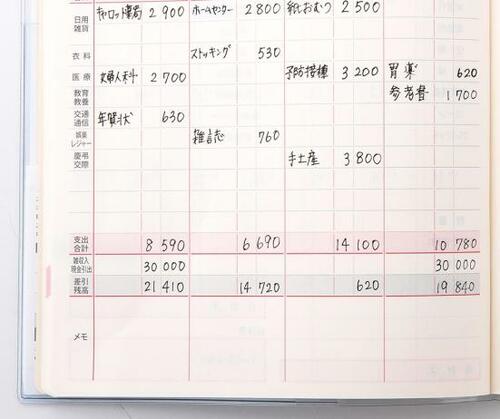 日用雑貨 キャロット薬局 2 900 ホームセンター 2 800 紙おむつ 2 500
衣料 ストッキング 530
医療 婦人科 2 700 予防接種 3 200 胃薬 620
教育教養 参考書 1 700
交通通信 年賀状 630
娯楽レジャー 雑誌 760
慶弔交際 手土産 3 800
支出合計 8 590 6 690 14 100 10 780
雑収入現金引出 30 000 30 000
差引残高 21 410 14 720 620 19 840
メモ